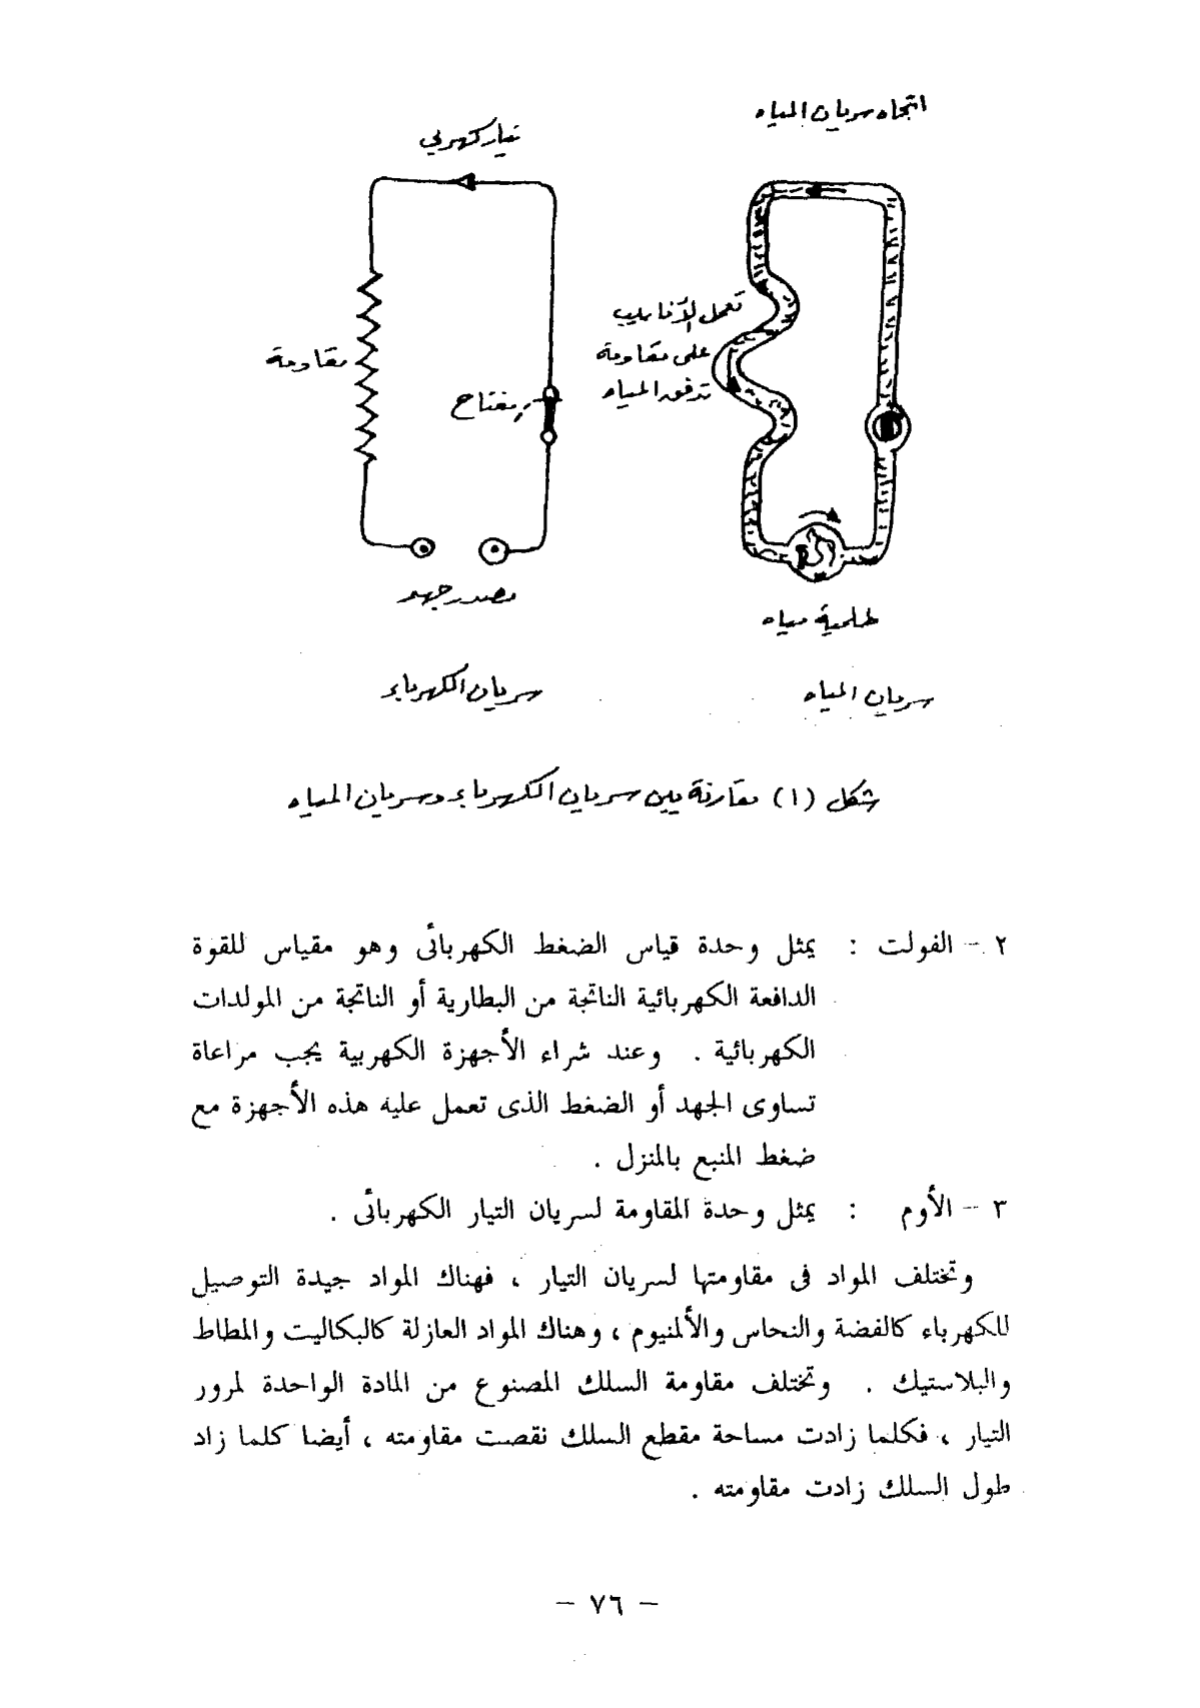 اتجاه سريان المياه
تيار كهربي
تعمل الأنابيب
على مقاومة
تدفق المياه
مقاومة
مفتاح
مصدر جهد
طلمبة مياه
سريان المياه
سريان الكهرباء
شكل (١) مقارنة بين سريان الكهرباء وسريان المياه
٢ - الفولت : يمثل وحدة قياس الضغط الكهربائى وهو مقياس للقوة
الدافعة الكهربائية الناتجة من البطارية أو الناتجة من المولدات
الكهربائية . وعند شراء الأجهزة الكهربية يجب مراعاة
تساوى الجهد أو الضغط الذى تعمل عليه هذه الأجهزة مع
ضغط المنبع بالمنزل .
٣ - الأوم : يمثل وحدة المقاومة لسريان التيار الكهربائى .
وتختلف المواد فى مقاومتها لسريان التيار ، فهناك المواد جيدة التوصيل
للكهرباء كالفضة والنحاس والألمنيوم ، وهناك المواد العازلة كالبكاليت والمطاط
والبلاستيك . وتختلف مقاومة السلك المصنوع من المادة الواحدة لمرور
التيار ، فكلما زادت مساحة مقطع السلك نقصت مقاومته ، أيضا كلما زاد
طول السلك زادت مقاومته .
- ٧٦ -